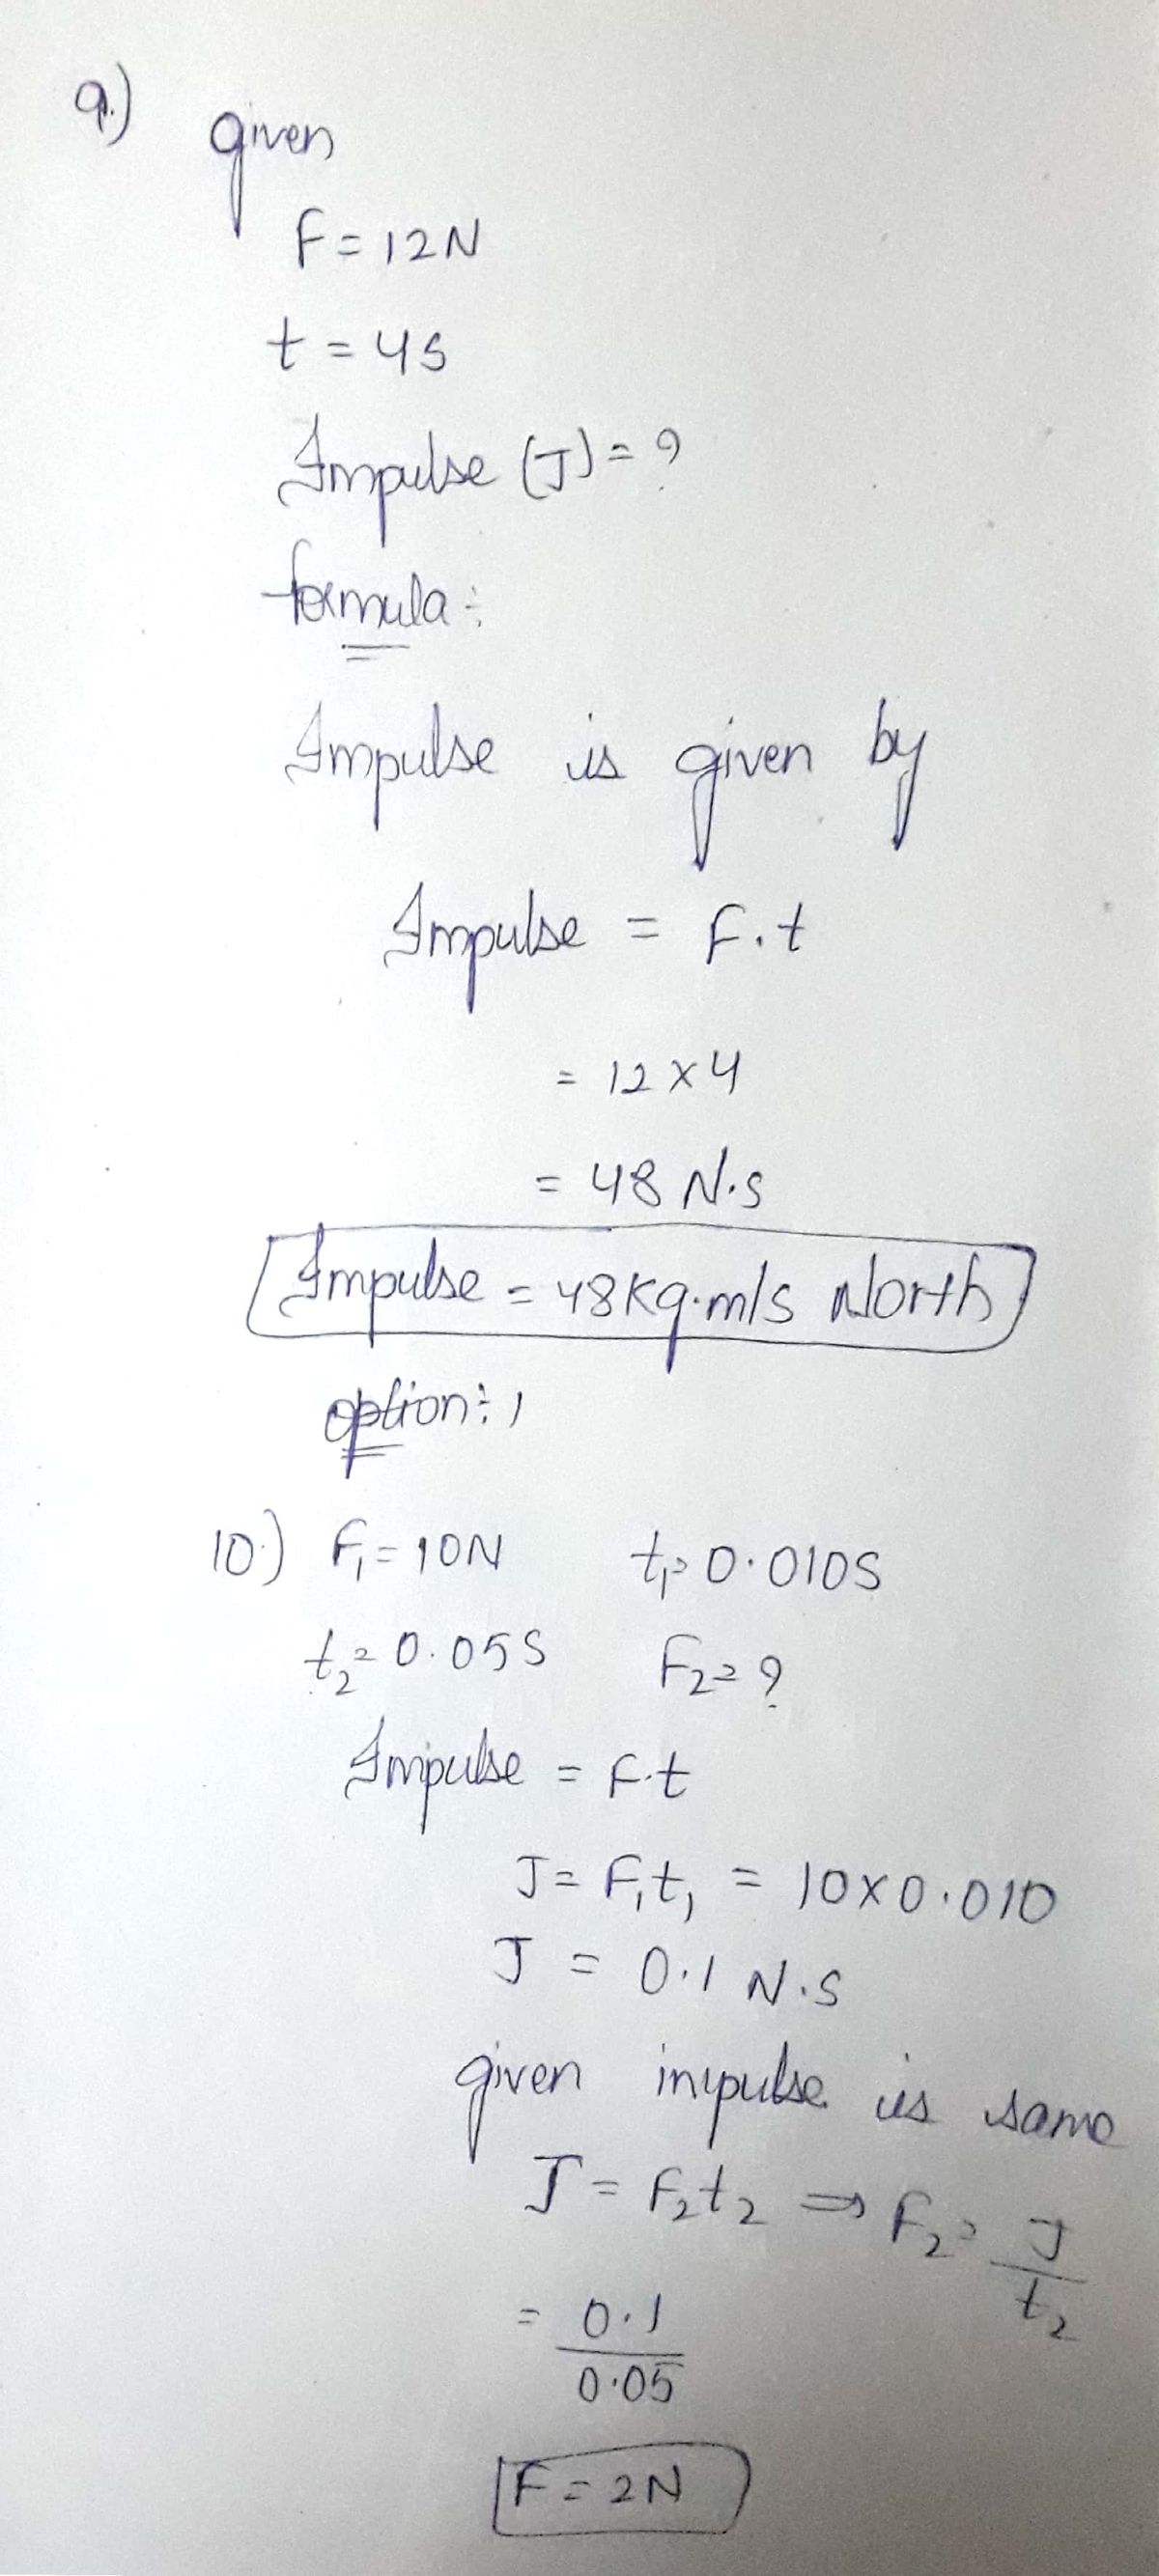 9.) given
F = 12N
t = 4s
Impulse (J) = ?
formula :
Impulse is given by
Impulse = F.t
= 12 x 4
= 48 N.s
Impulse = 48kg.m/s North
option : 1
10.) F₁ = 10N t₁ = 0.010s
t₂ = 0.05s F₂ = ?
Impulse = F.t
J = F₁t₁ = 10x0.010
J = 0.1 N.s
given impulse is same
J = F₂t₂ ⇒ F₂ = J/t₂
= 0.1/0.05
F = 2N